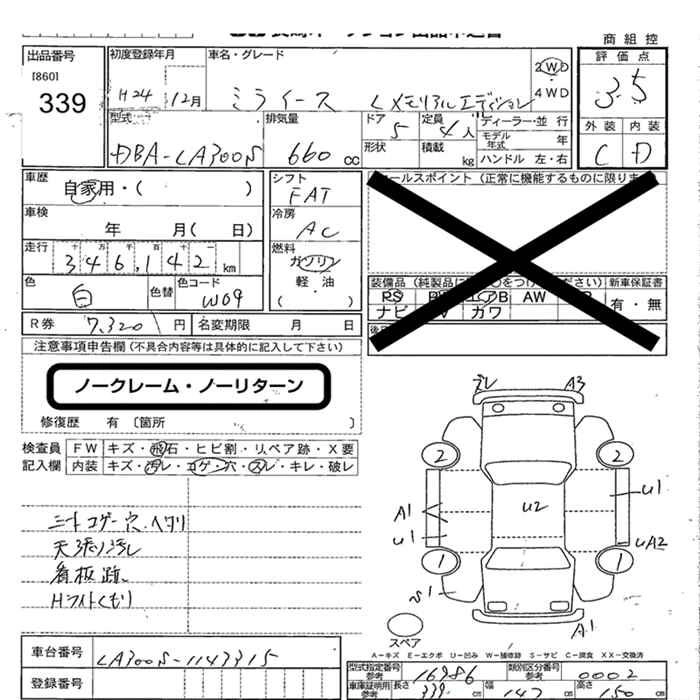 商組控
出品番号
[860]
339
初度登録年月
H24 12月
車名・グレード
ミライース Lメモリアルエディション
2WD
4WD
評価点
3.5
外装 内装
C D
型式
DBA-LA300S
排気量
660 cc
ドア
5
定員
4人
形状
積載
kg
ディーラー・並行
モデル年式
年
ハンドル 左・右
車歴
自家用・( )
車検
年 月( 日)
走行
十 万 千 百 十 一
346,142 km
色
白
色替
色コード
W09
シフト
FAT
冷房
AC
燃料
ガソリン
軽・油
( )
セールスポイント(正常に機能するものに限りま
装備品(純製品 をつけ ださい)
新車保証書
PS
AW
ナビ
カワ
有・無
R券 7,320 円
名変期限 月 日
注意事項申告欄(不具合内容等は具体的に記入して下さい)
ノークレーム・ノーリターン
修復歴 有 〔箇所 〕
検査員
記入欄
FW キズ・飛石・ヒビ割・リペア跡・X要
内装 キズ・汚レ・コゲ・穴・スレ・キレ・破レ
ニオイ コゲ 穴 ヘタリ
天張り汚レ
看板跡
Hライトくもり
ズレ A3
2 2
A1
U1
U2
U1
UA2
1 1
S1
A1
スペア
A-キズ E-エクボ U-凹み W-補修跡 S-サビ C-腐食 XX-交換済
車台番号
LA300S-1143315
登録番号
型式指定番号
参考
16986
類別区分番号
参考
0002
車庫証明用
参考
長さ
339 cm
幅
147 cm
高さ
150 cm